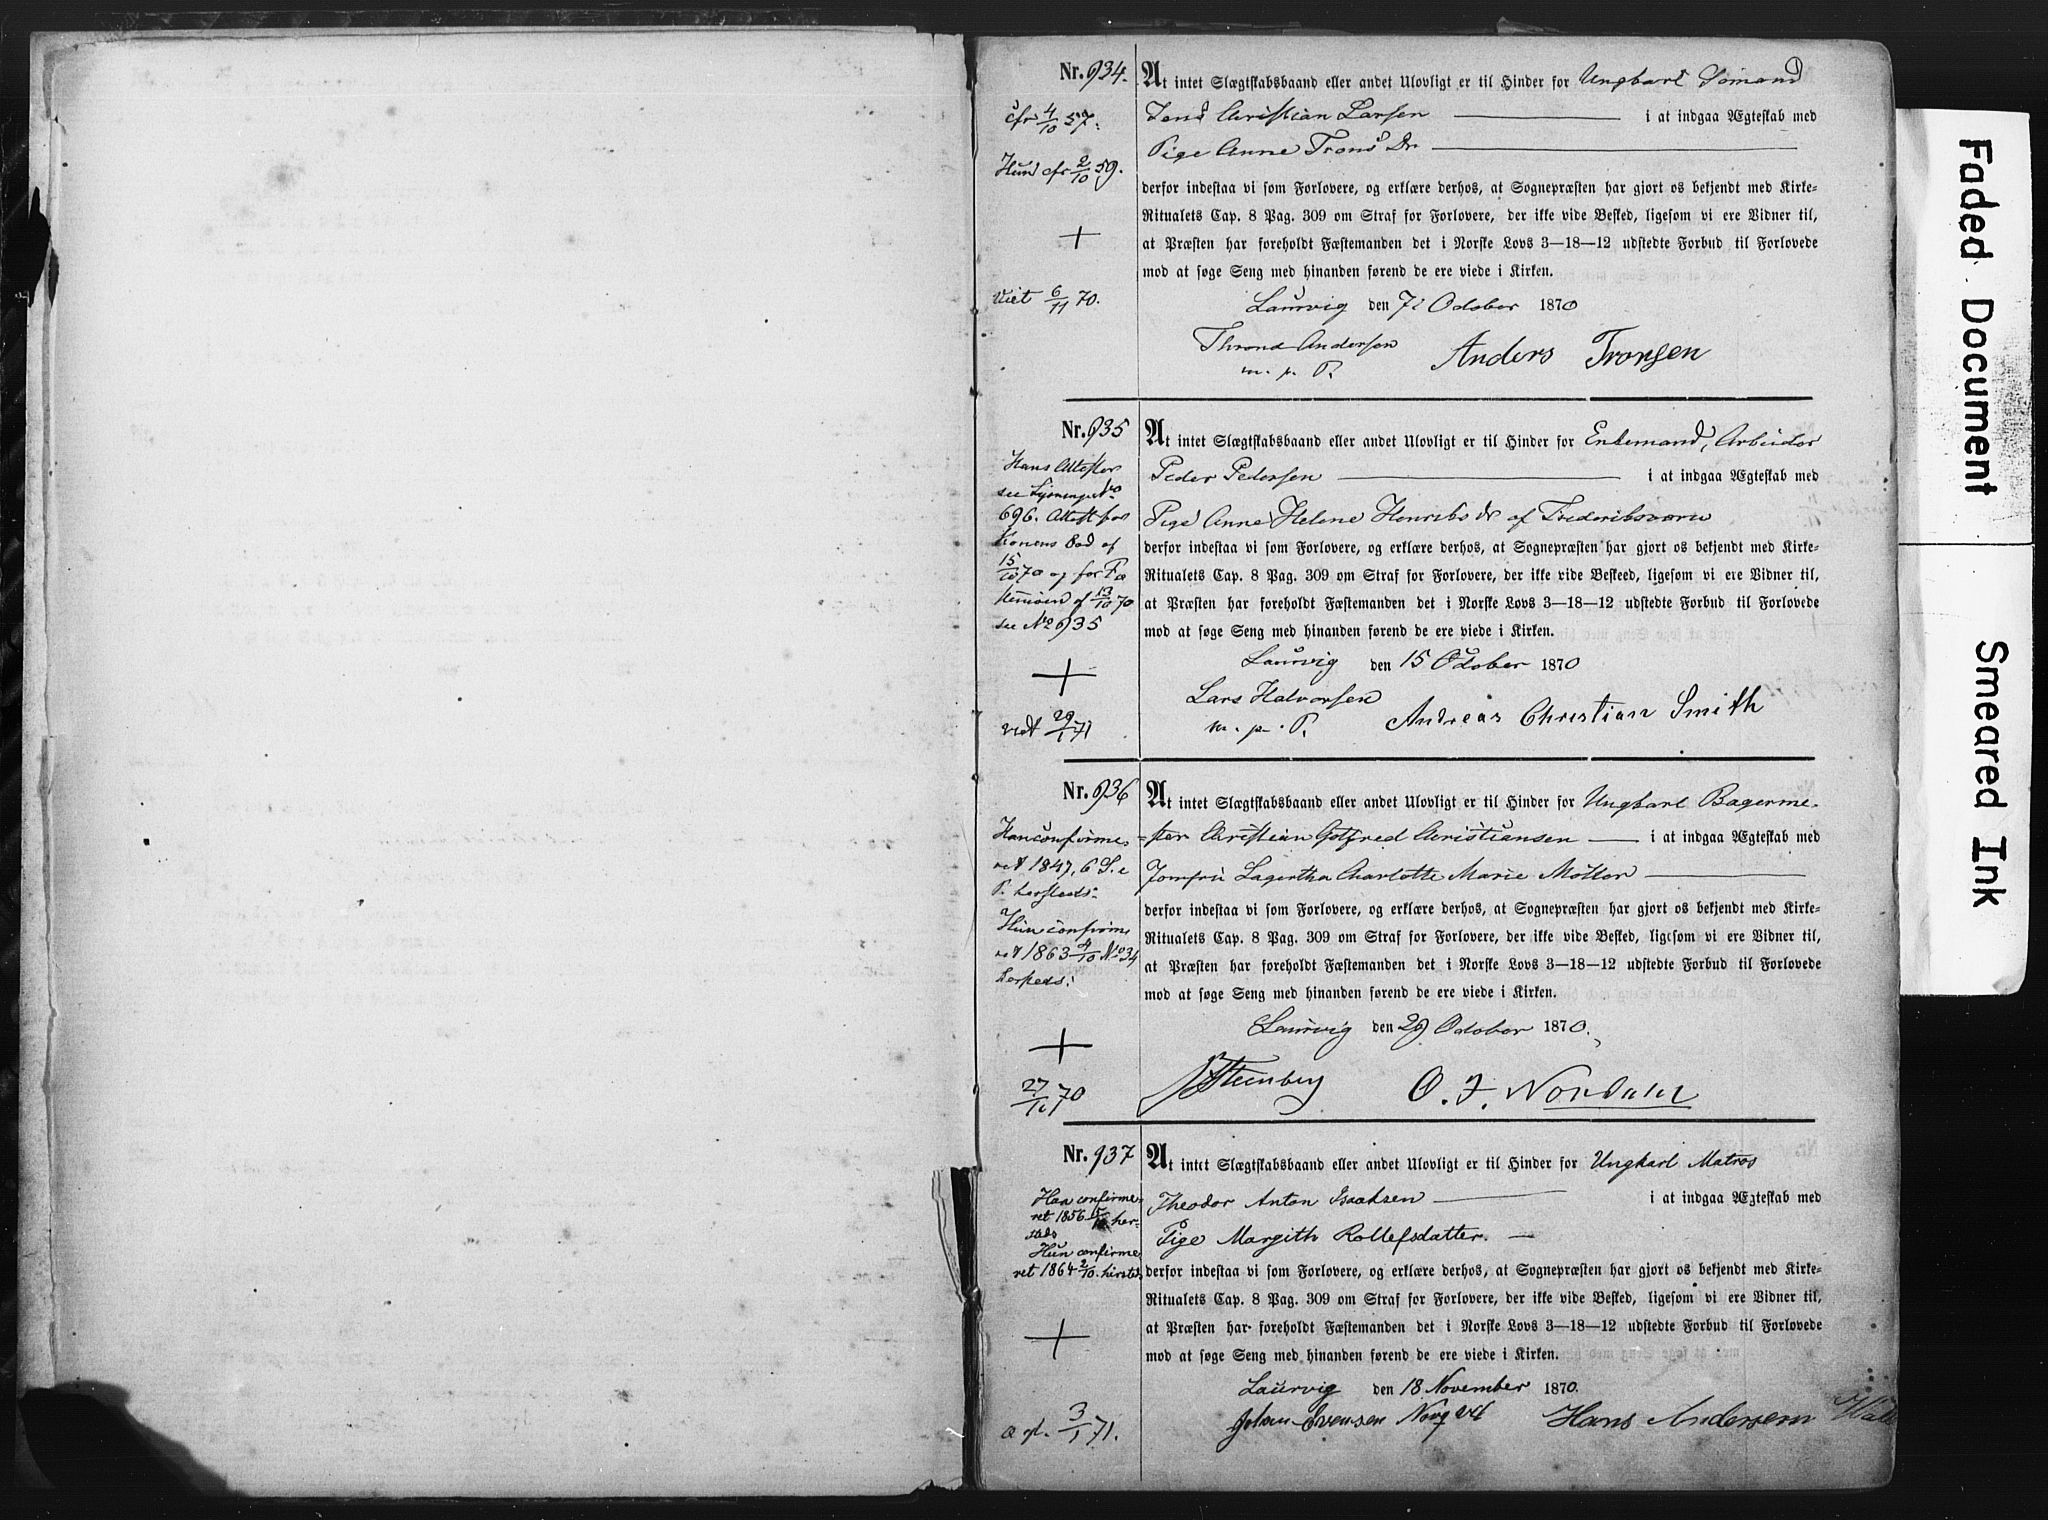 Nr. 934.
At intet Slægtskabsbaand eller andet Ulovligt er til Hinder for Ungkarl Sømand
Jens Christian Larsen i at indgaa Ægteskab med
Pige Anne Trons Dr
derfor indestaa vi som Forlovere, og erklære derhos, at Sognepræsten har gjort os bekjendt med Kirke-
Ritualets Cap. 8 Pag. 309 om Straf for Forlovere, der ikke vide Besked, ligesom vi ere Vidner til,
at Præsten har foreholdt Fæstemanden det i Norske Lovs 3—18—12 udstedte Forbud til Forlovede
mod at søge Seng med hinanden førend de ere viede i Kirken.
Laurvig den 7i October 1870
Thrond Andersen Anders Tronsen
m. p. P.
cfr 4/10 57.
Hun cfr 2/10 59.
+
viet 6/11 70.
Nr. 935
At intet Slægtskabsbaand eller andet Ulovligt er til Hinder for Enkemand, Arbeider
Peder Pedersen i at indgaa Ægteskab med
Pige Anne Helene Henriks Dr af Frederiksværn
derfor indestaa vi som Forlovere, og erklære derhos, at Sognepræsten har gjort os bekjendt med Kirke-
Ritualets Cap. 8 Pag. 309 om Straf for Forlovere, der ikke vide Beskeed, ligesom vi ere Vidner til,
at Præsten har foreholdt Fæstemanden det i Norske Lovs 3—18—12 udstedte Forbud til Forlovede
mod at søge Seng med hinanden førend de ere viede i Kirken.
Laurvig den 15 October 1870
Lars Halvorsen Andreas Christian Smith
m. p. P.
Hans Attester
see Lysnings No
696. Attest for
Konens Død af
15/10 70 og for Fæ
stemøen af 13/10 70
see No 935
+
viet 29/1 71
Nr. 936
At intet Slægtskabsbaand eller andet Ulovligt er til Hinder for Ungkarl Bagerme-
ster Christian Gotfred Christiansen i at indgaa Ægteskab med
Jomfru Lagertha Charlotte Marie Møller
derfor indestaa vi som Forlovere, og erklære derhos, at Sognepræsten har gjort os bekjendt med Kirke-
Ritualets Cap. 8 Pag. 309 om Straf for Forlovere, der ikke vide Besked, ligesom vi ere Vidner til,
at Præsten har foreholdt Fæstemanden det i Norske Lovs 3—18—12 udstedte Forbud til Forlovede
mod at søge Seng med hinanden førend de ere viede i Kirken.
Laurvig den 29 October 1870.
Steenberg O. J. Nordahl
Han confirme-
ret 1847, 6 S. e
P. hersteds.
Hun confirme
ret 1863 4/10 No 34
hersteds.
+
27/11 70
Nr. 937
At intet Slægtskabsbaand eller andet Ulovligt er til Hinder for Ungkarl Matros
Theodor Anton Isaksen i at indgaa Ægteskab med
Pige Margith Rollefsdatter.
derfor indestaa vi som Forlovere, og erklære derhos, at Sognepræsten har gjort os bekjendt med Kirke-
Ritualets Cap. 8 Pag. 309 om Straf for Forlovere, der ikke vide Besked, ligesom vi ere Vidner til,
at Præsten har foreholdt Fæstemanden det i Norske Lovs 3—18—12 udstedte Forbud til Forlovede
mod at søge Seng med hinanden førend de ere viede i Kirken.
Laurvig den 18 November 1870.
Johan Svensen Hans Andersen
Han confirme-
ret 1856 5/10 her-
steds
Hun confirme
ret 1864 2/10. hersteds
+
3/1 71.
Faded Document
Smeared Ink